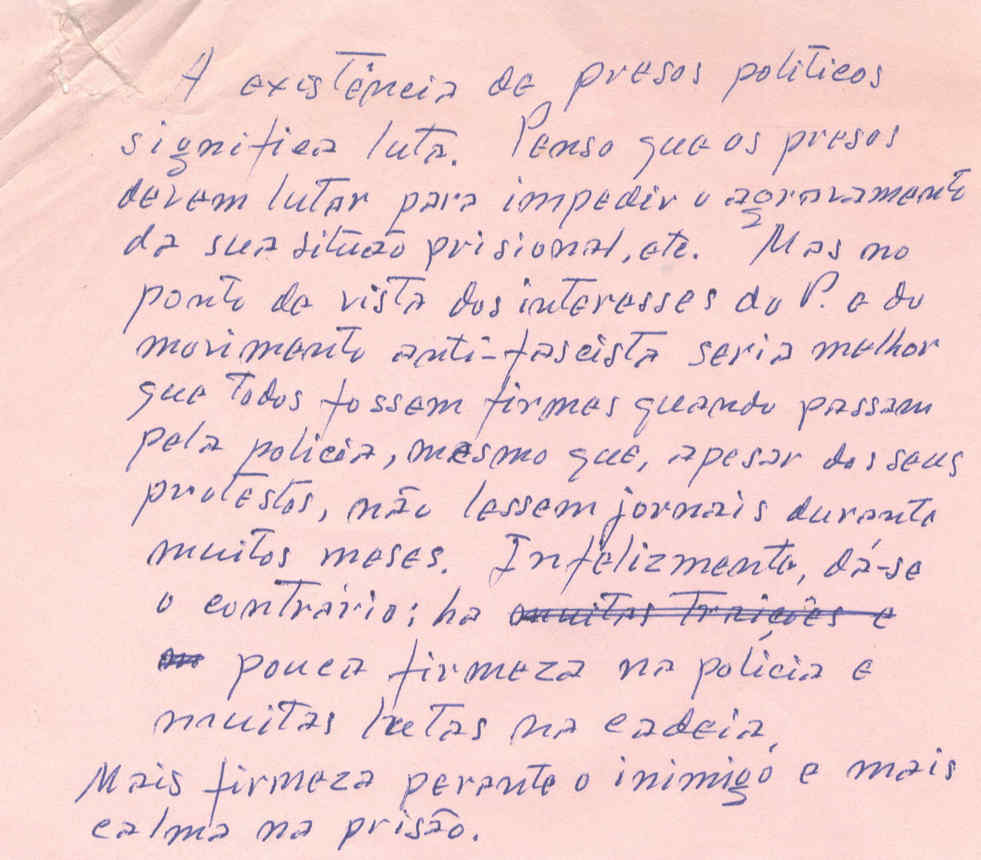 A existência de presos politicos
significa luta. Penso que os presos
devem lutar para impedir o agravamento
da sua situaão prisional, etc. Mas no
ponto de vista dos interesses do P. e do
movimento anti-fascista seria melhor
que todos fossem firmes quando passam
pela policia, mesmo que, apesar dos seus
protestos, não lessem jornais durante
muitos meses. Infelizmente, dá-se
o contrário: ha muitas traições e
pouca firmeza na polícia e
muitas lutas na cadeia.
Mais firmeza perante o inimigo e mais
calma na prisão.